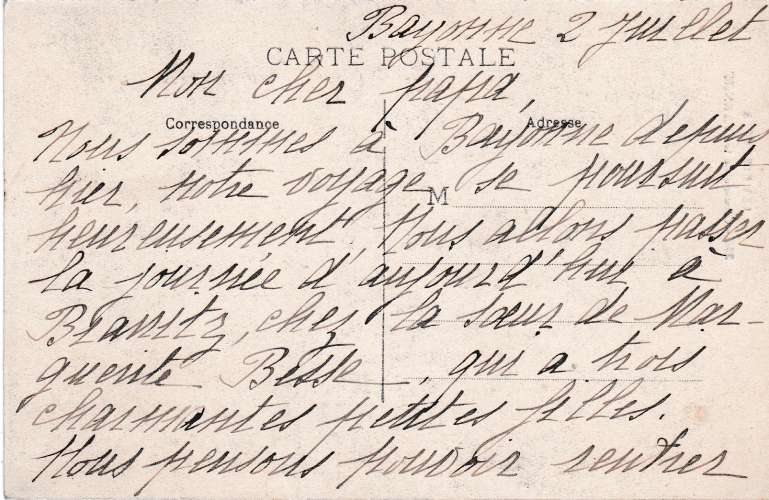 Bayonne 2 Juillet
CARTE POSTALE
Mon cher papa,
Correspondance
Adresse
Nous sommes à Bayonne depuis
hier, notre voyage se poursuit
M
heureusement. Nous allons passer
la journée d'aujourd'hui à
Biarritz, chez la sœur de Mar-
guerite Besse, qui a trois
charmantes petites filles.
Nous pensons pouvoir rentrer